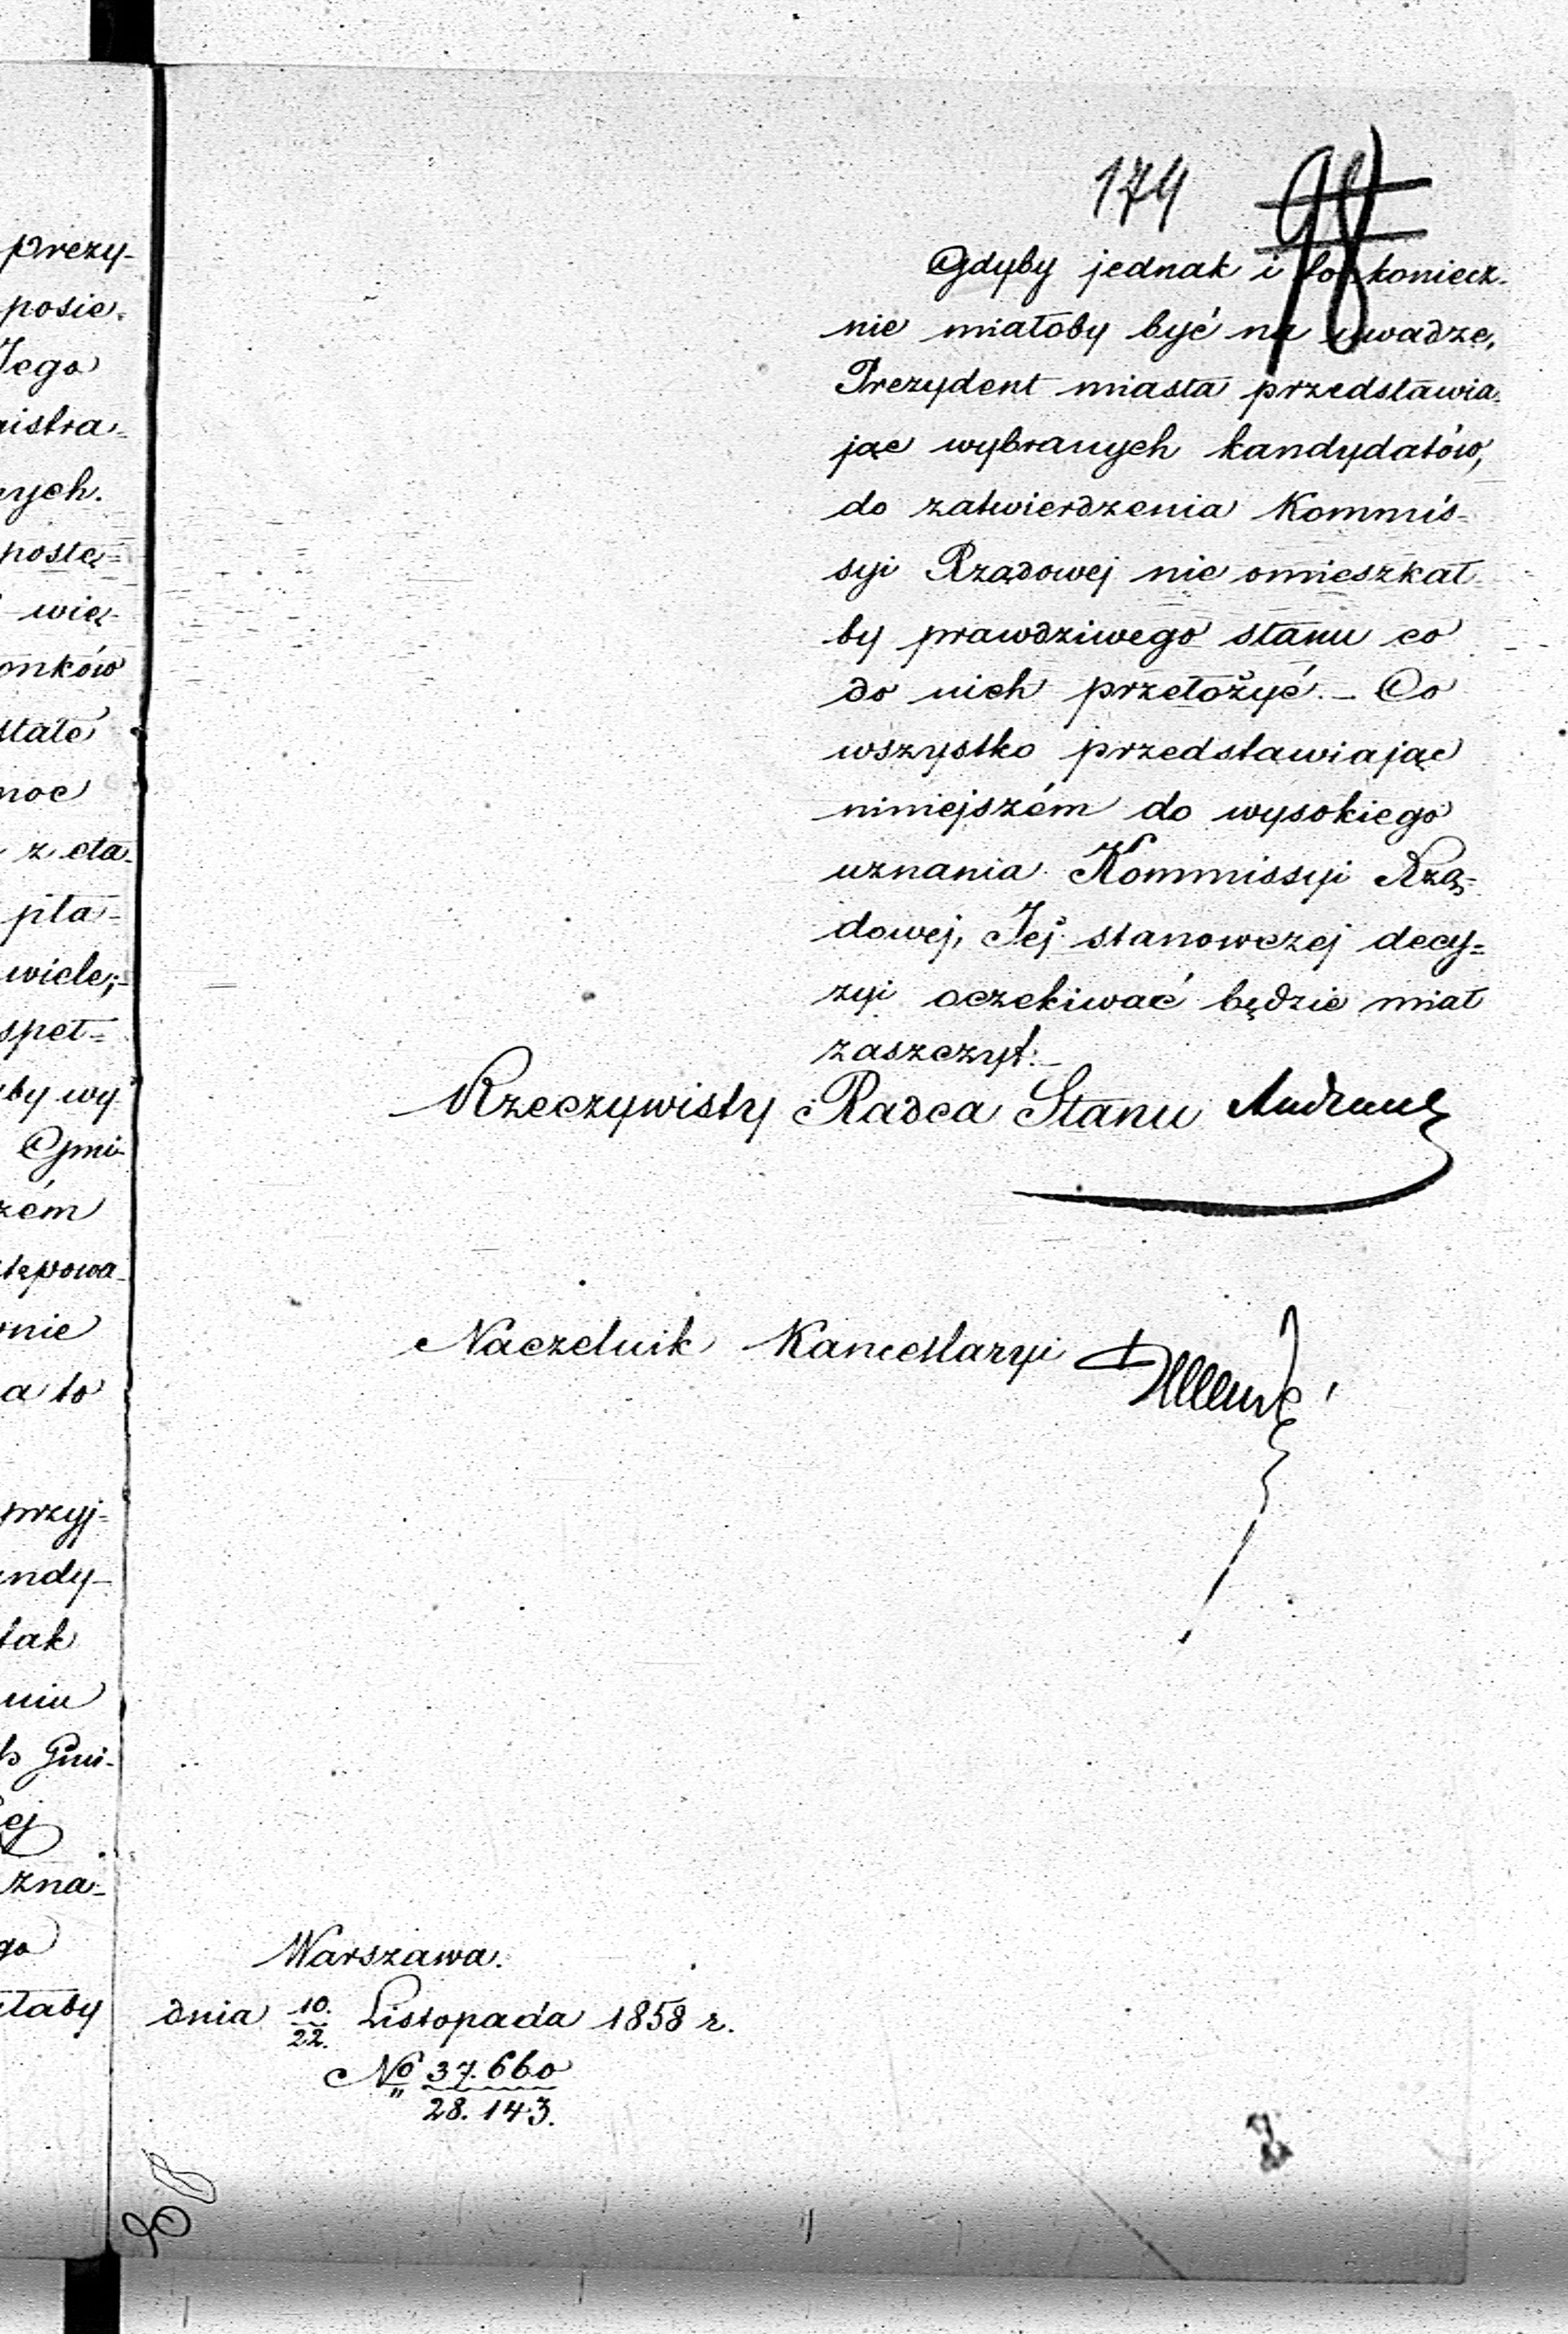 prezy-
posie.
Jego
nistra-
nych.
postę-
wię-
onków
stałe
moc
z eta-
pła-
wiele,-
speł-
by wy
Gmi-
zém
stępowa-
nie
a to
przyj-
andy-
tak
niu
Gmi-
ej
zna-
go
ałaby
174 98
Gdyby jednak i to koniecz-
nie miałoby być na uwadze,
Prezydent miasta przedstawia-
jąc wybranych kandydatów,
do zatwierdzenia Kommis-
syi Rządowej nie omieszkał
by prawdziwego stanu co
do nich przełożyć. – Co
wszystko przedstawiając
niniejszém do wysokiego
uznania Kommissyi Rzą-
dowej, Jej stanowczej decy-
zyi oczekiwać będzie miał
zaszczyt. –
Rzeczywisty Radca Stanu
Naczelnik Kancellaryi
Warszawa.
dnia 10./22. Listopada 1858 r.
No 37.660
28.143.